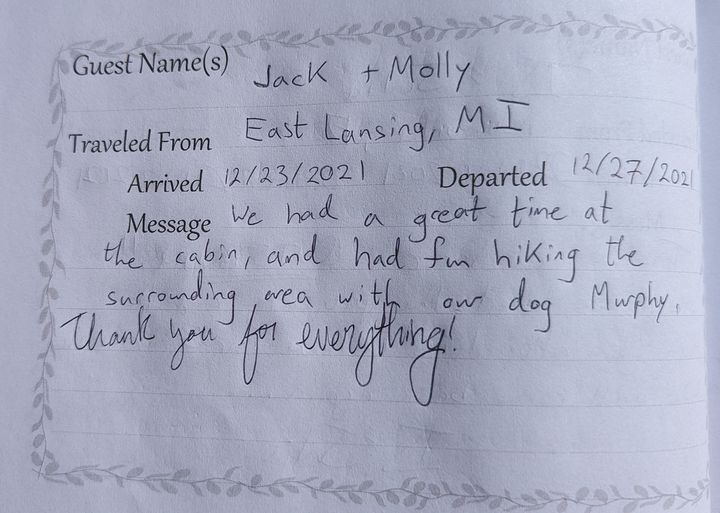 Guest Name(s) Jack + Molly
Traveled From East Lansing, MI
Arrived 12/23/2021 Departed 12/27/2021
Message We had a great time at
the cabin, and had fun hiking the
surrounding area with our dog Murphy.
Thank you for everything!